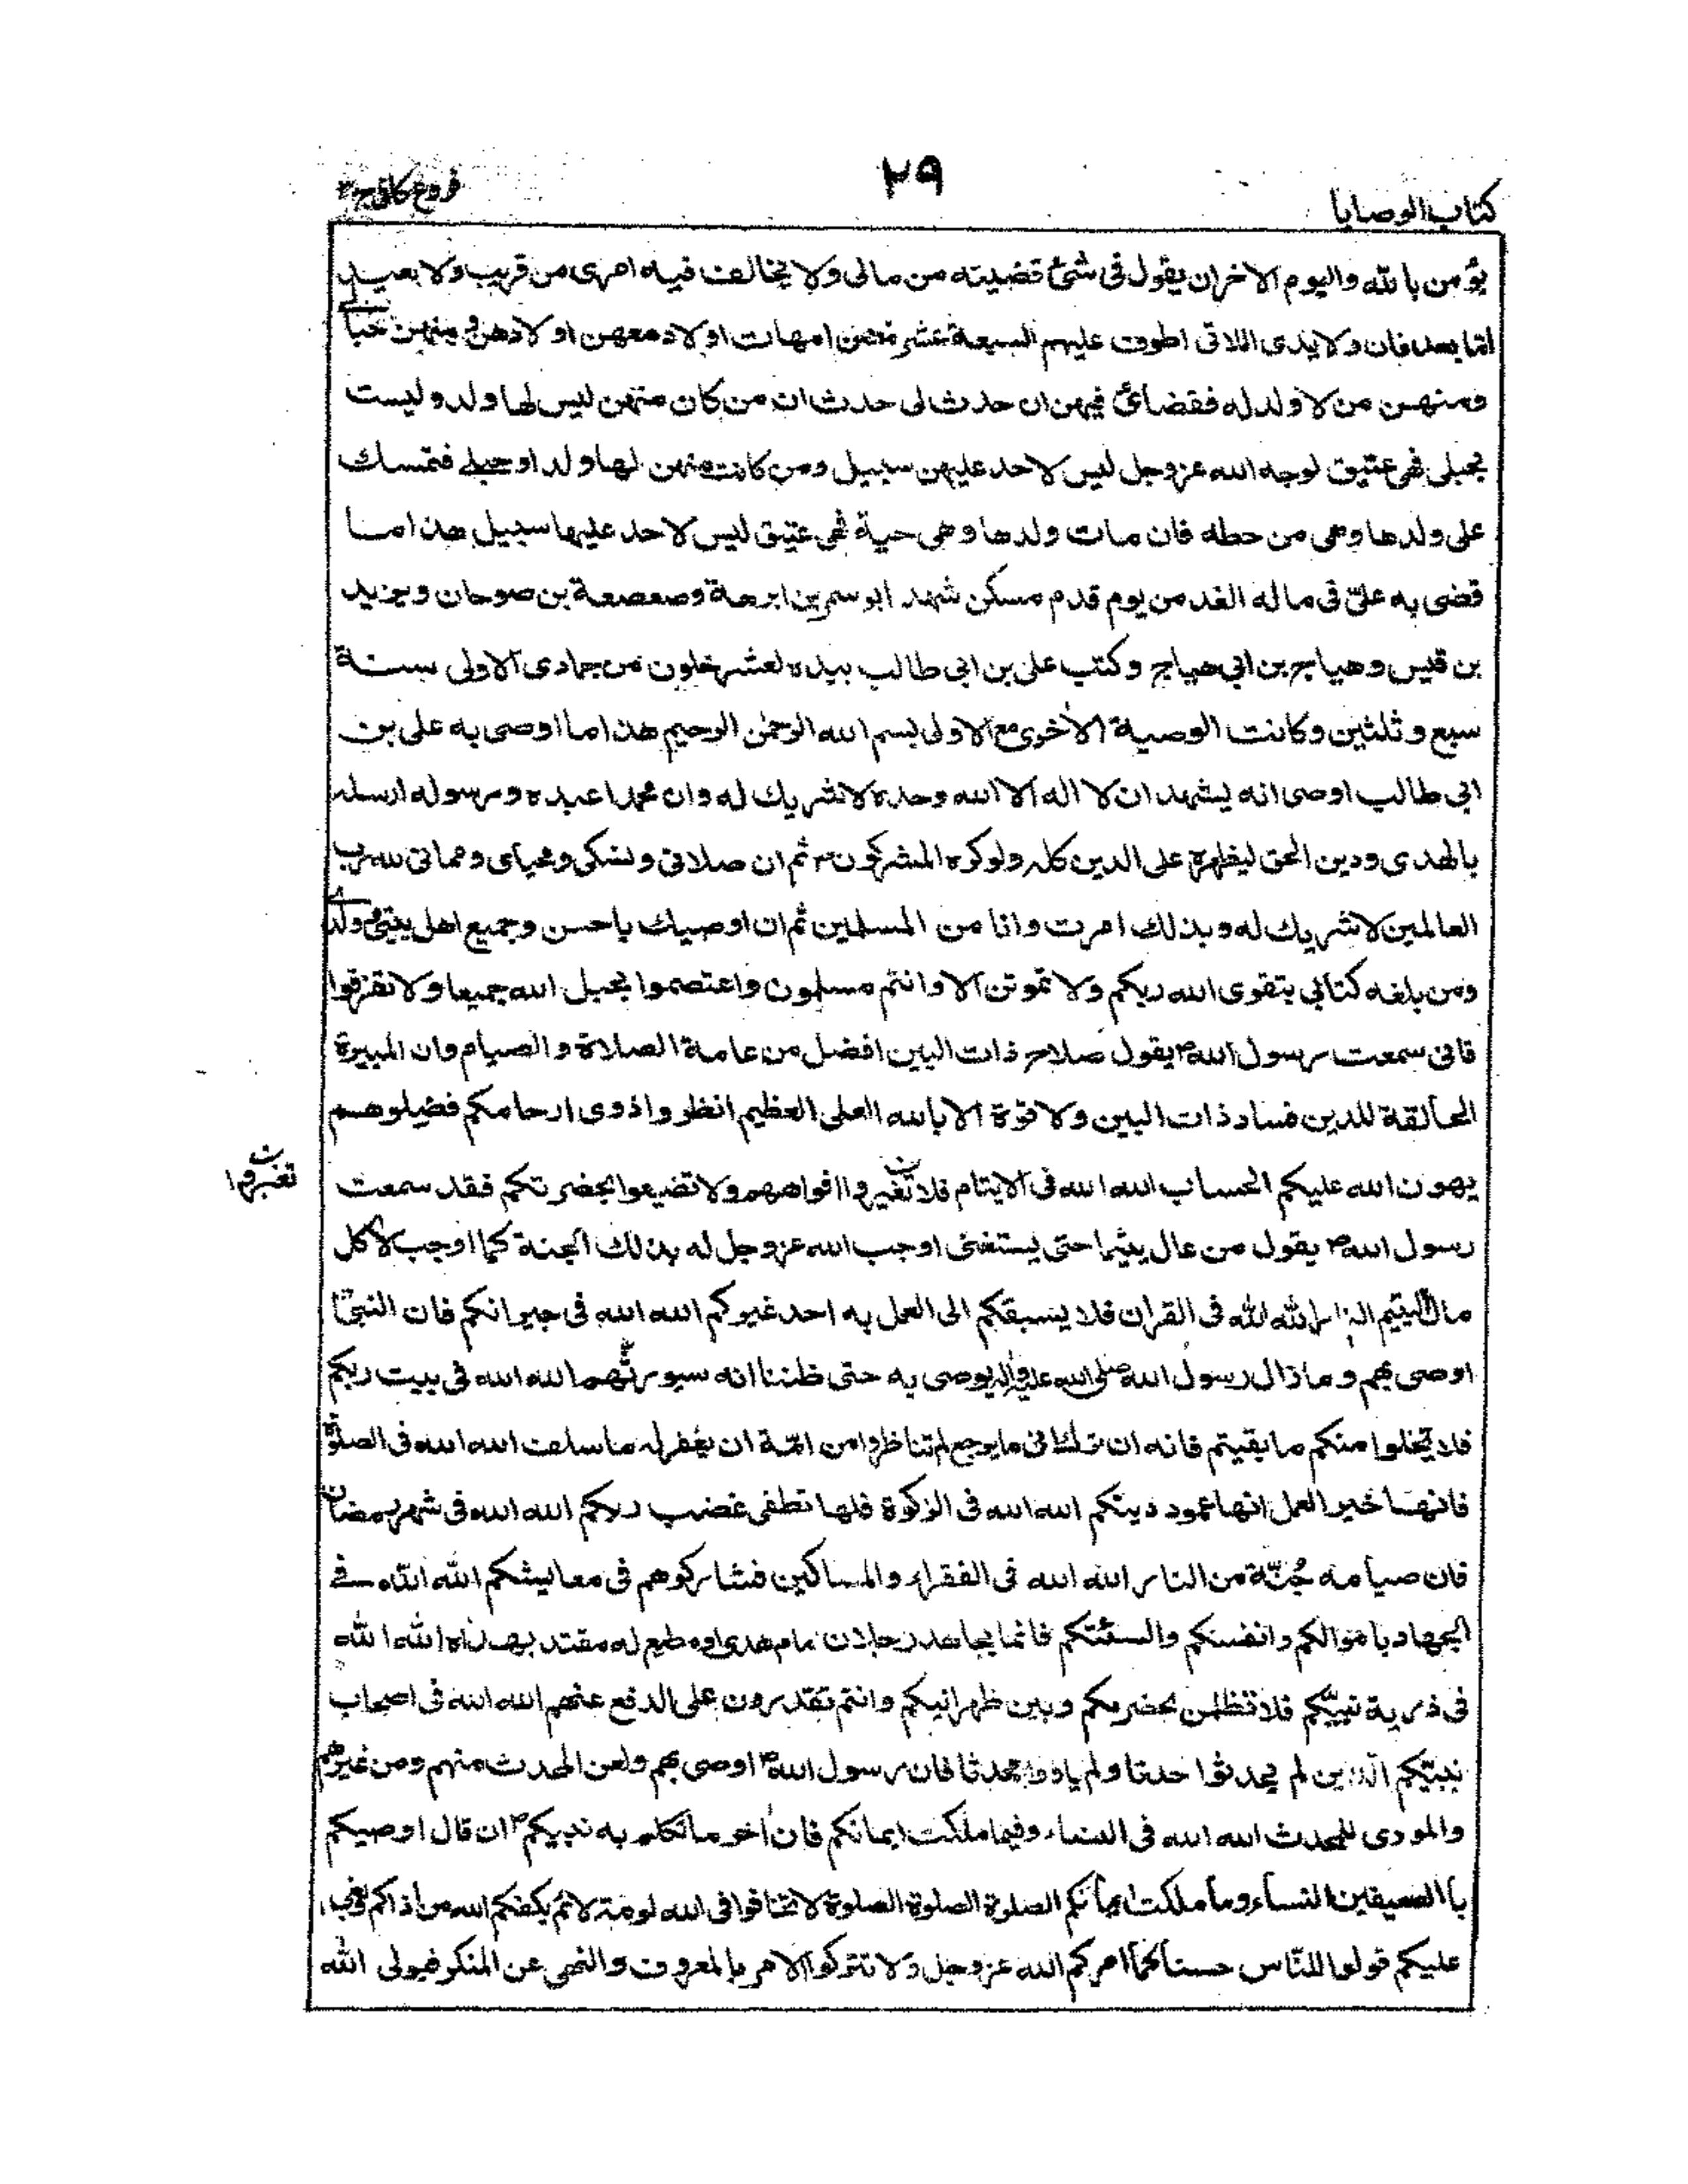 كتاب الوصايا
٢٩
فروع كافي ج٣
يؤمن بالله واليوم الاخر ان يقول فى شئ قضيته من مالى ولا يخالف فيه امرى من قريب ولا بعيد
اما بعد فان ولايدى اللاتى اطوف عليهم السبعة عشر منهن امهات اولاد معهن اولادهن ومنهن حبالى
ومنهن من لا ولد له فقضائى فيهن ان حدث لى حدث ان من كان منهن ليس لها ولد وليست
بحبلى فهى عتيق لوجه الله عز وجل ليس لاحد عليهن سبيل ومن كانت منهن لها ولد او حبلى فتمسك
على ولدها وهى من حظه فان مات ولدها وهى حية فهى عتيق ليس لاحد عليها سبيل هذا ما
قضى به على فى ماله الغد من يوم قدم مسكن شهد ابو سمر بن ابرهة وصعصعة بن صوحان ويزيد
بن قيس وهياج بن ابى هياج وكتب على بن ابى طالب بيده لعشر خلون من جمادى الاولى سنة
سبع وثلثين وكانت الوصية الاخرى مع الاولى بسم الله الرحمن الرحيم هذا ما اوصى به على بن
ابى طالب اوصى انه يشهد ان لا اله الا الله وحده لا شريك له وان محمدا عبده ورسوله ارسله
بالهدى ودين الحق ليظهره على الدين كله ولو كره المشركون ثم ان صلاتى ونسكى ومحياى ومماتى لله رب
العالمين لا شريك له وبذلك امرت وانا من المسلمين ثم ان اوصيك ياحسن وجميع اهل بيتى وولدى
ومن بلغه كتابى بتقوى الله ربكم ولا تموتن الا وانتم مسلمون واعتصموا بحبل الله جميعا ولا تفرقوا
فانى سمعت رسول الله ص يقول صلاح ذات البين افضل من عامة الصلاة والصيام وان المبيرة
الحالقة للدين فساد ذات البين ولا قوة الا بالله العلى العظيم انظروا ذوى ارحامكم فصلوهم
يهون الله عليكم الحساب الله الله فى الايتام فلا تغيروا افواههم ولا تضيعوا بحضرتكم فقد سمعت
رسول الله ص يقول من عال يتيما حتى يستغنى اوجب الله عز وجل له بذلك الجنة كما اوجب لاكل
مال اليتيم النار الله الله فى القران فلا يسبقكم الى العمل به احد غيركم الله الله فى جيرانكم فان النبى ص
اوصى بهم وما زال رسول الله صلى الله عليه واله يوصى به حتى ظننا انه سيورثهم الله الله فى بيت ربكم
فلا تخلوا منكم ما بقيتم فانه ان ترك لم تناظروا من امه ان يغفر له ما سلف الله الله فى الصلوة
فانها خير العمل انها عمود دينكم الله الله فى الزكوة فانها تطفى غضب ربكم الله الله فى شهر رمضان
فان صيامه جُنّة من النار الله الله فى الفقراء والمساكين فشاركوهم فى معايشكم الله الله فى
الجهاد باموالكم وانفسكم والسنتكم فانما يجاهد رجلان امام هدى او مطيع له مقتد بهداه الله الله
فى ذرية نبيّكم فلا تظلمن بحضرتكم وبين ظهرانيكم وانتم تقدرون على الدفع عنهم الله الله فى اصحاب
نبيّكم الذين لم يحدثوا حدثا ولم ياووا محدثا فان رسول الله ص اوصى بهم ولعن المحدث منهم ومن غيرهم
والمودى للمحدث الله الله فى النساء وفيما ملكت ايمانكم فان اخر ما تكلم به نبيكم ص ان قال اوصيكم
بالضعيفين النساء وما ملكت ايمانكم الصلوة الصلوة الصلوة لا تخافوا فى الله لومة لائم يكفكم الله من اذاكم وبغى
عليكم قولوا للنّاس حسنا كما امركم الله عز وجل ولا تتركوا الامر بالمعروف والنهى عن المنكر فيولى الله
تغيروا ن